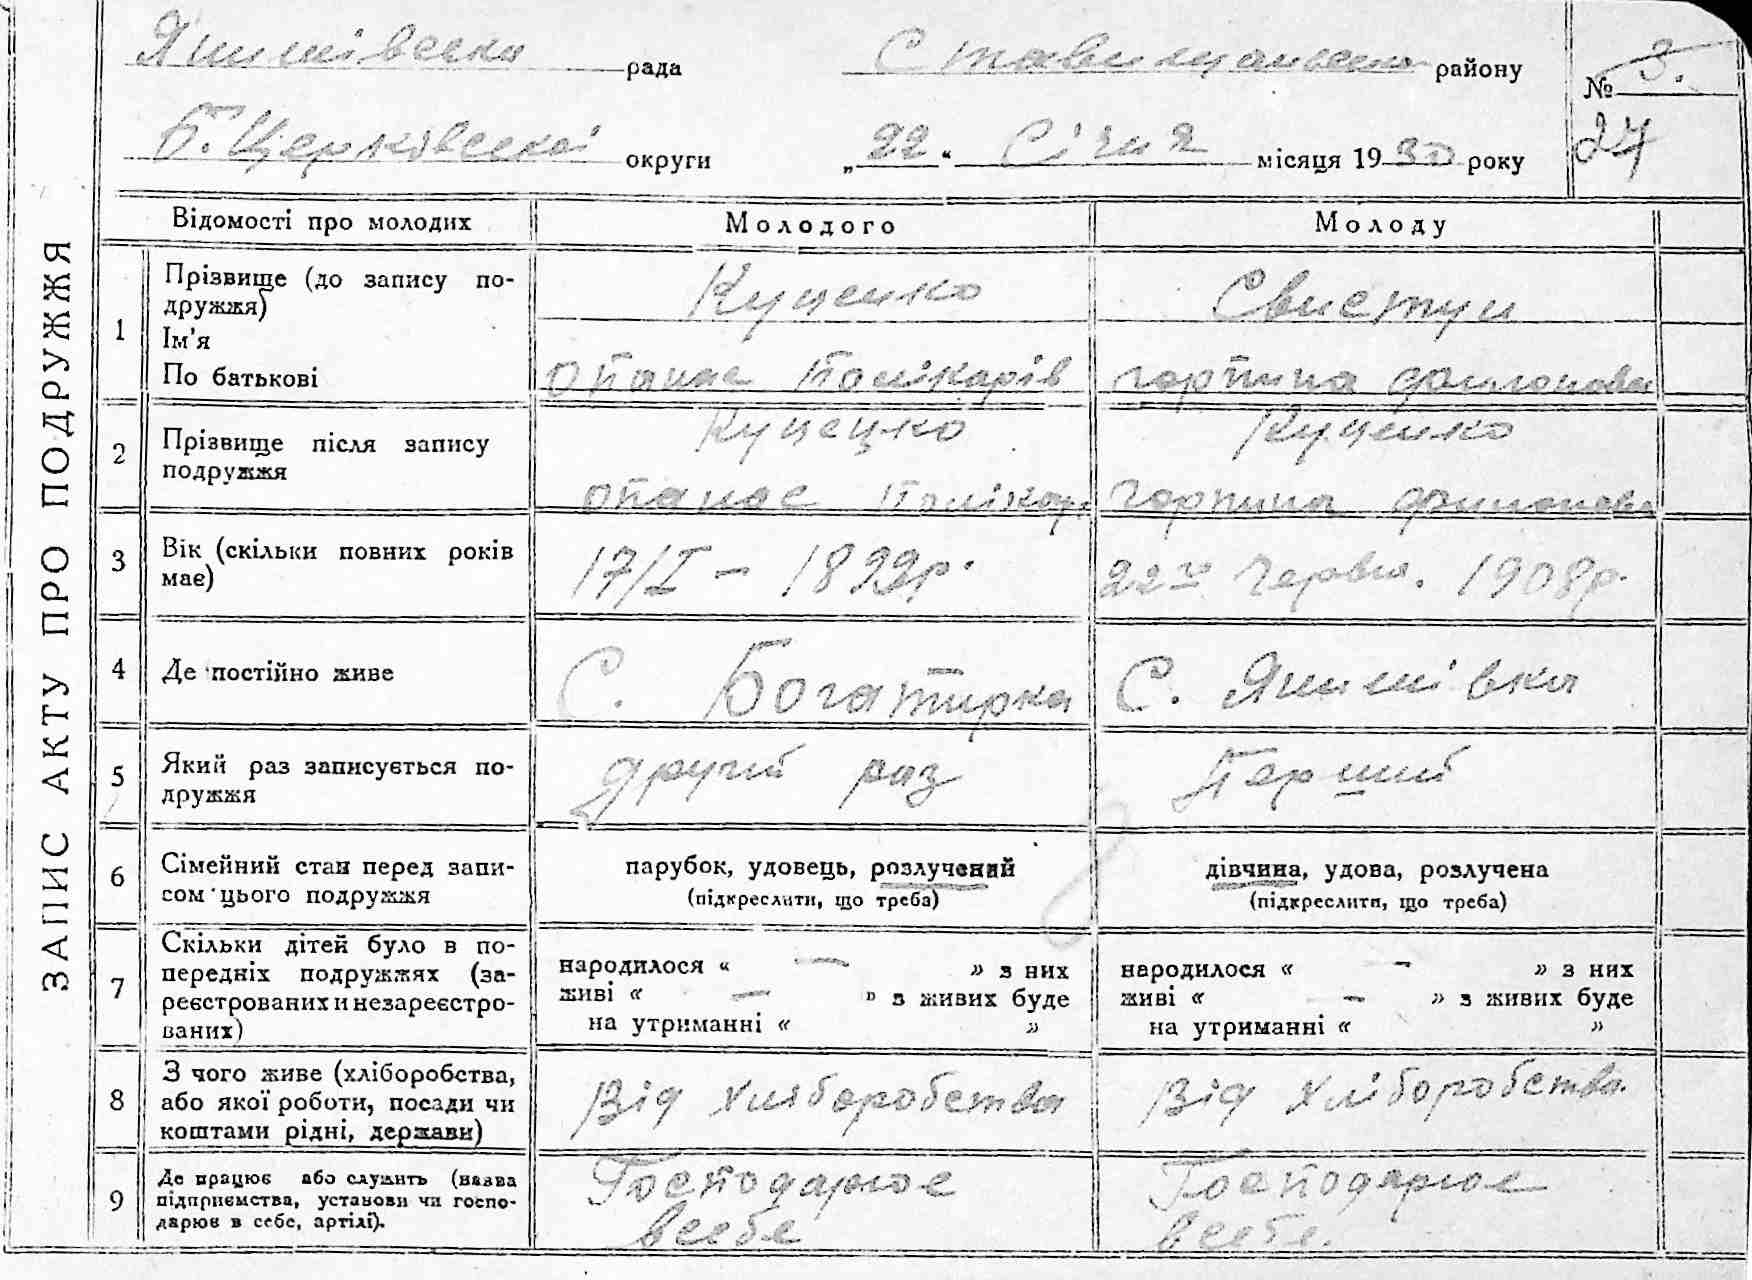 Янишівська рада Ставищанського району № 3.
Б. Церківської округи „22“ Січня місяця 1930 року 27
ЗАПИС АКТУ ПРО ПОДРУЖЖЯ
Відомості про молодих Молодого Молоду
1 Прізвище (до запису по- Куценко Свистун
дружжя)
Ім'я
По батькові Опанас Полікарів Горпина Филонова
2 Прізвище після запису Куценко Куценко
подружжя Опанас Полікар. Горпина Филонова
3 Вік (скільки повних років 17/I – 1899р. 22го Червня. 1908р.
має)
4 Де постійно живе С. Богатирка С. Янишівка
5 Який раз записується по- другий раз Перший
дружжя
6 Сімейний стан перед запи- парубок, удовець, розлучений дівчина, удова, розлучена
сом цього подружжя (підкреслити, що треба) (підкреслити, що треба)
7 Скільки дітей було в по-
передніх подружжях (за- народилося « — » з них народилося « — » з них
реєстрованих и незареєстро- живі « — » з живих буде живі « — » з живих буде
ваних) на утриманні « » на утриманні « »
8 З чого живе (хліборобства,
або якої роботи, посади чи Від Хліборобства Від Хліборобства
коштами рідні, держави)
9 Де працює або служить (назва Господарює Господарює
підприємства, установи чи госпо-
дарює в себе, артілі). всебе всебе.